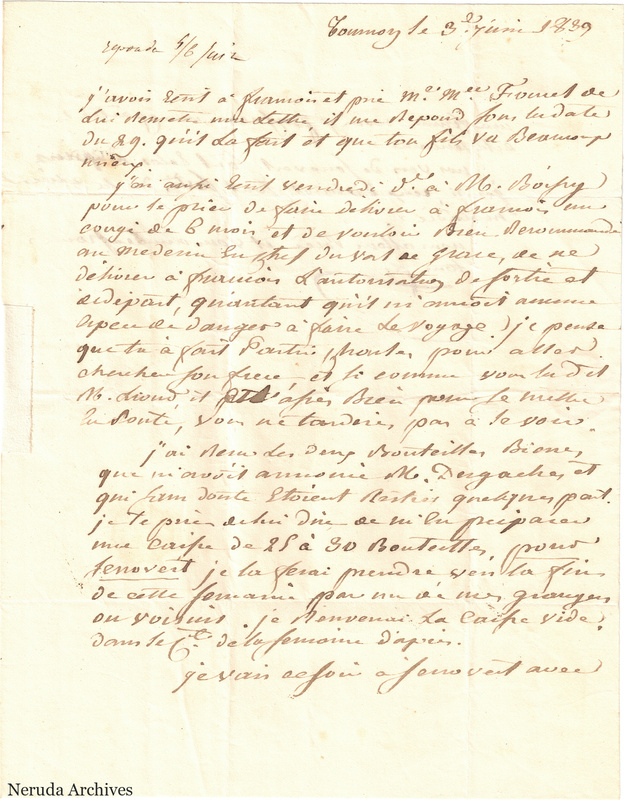 le 3. juin 1839
juin
j'avois Ecrit à francois et prié Mr. Mer de
Lui Remettre une Lettre il me Repond sous la date
du 29. qu'il La fait et que ton fils va Beaucoup
mieux
j'ai aussi Ecrit vendredi dr. à M. Boissy
pour le prier de faire délivrer à francois un
congé de 6 mois et de vouloir Bien Recommander
au medecin En chef du val de Grace, de ne
délivrer à francois L'autorisation de sortie et
de départ, qu'autant qu'il n'i auroit aucune
Espece de danger à faire Le voyage. je pense
que tu à fait Partir, pour aller
chercher son frere et si comme vous la dit
M. il assés Bien pour se mettre
En Route, vous ne tarderés pas à le voir.
j'ai Recu Les deux Bouteilles Bierre,
que m'avoit annoncé M. Desgaches et
qui sans doute Etoient Restés quelques part.
je te prie de lui dire de m'En préparer
une caisse de 25 à 30 Bouteilles, pour
senovert je la ferai prendre vers la fin
de cette semaine par un de mes grangers
ou voisins. je Renverrai La caisse vide
dans le ct. de la semaine d'après.
je vais ce soir à senovert avec
Neruda Archives